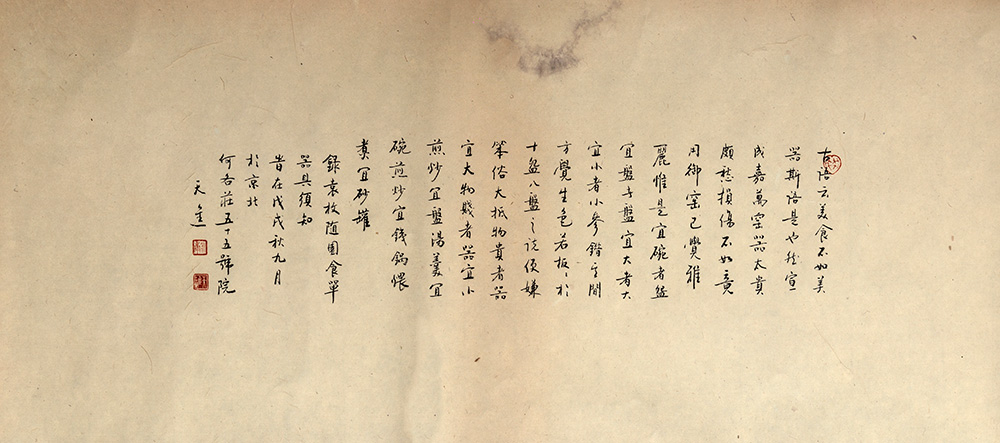 古語云美食不如美
器斯語是也然宣
成嘉萬窑器太貴
頗愁損傷不如竟
用御窑已覺雅
麗惟是宜碗者碗
宜盤者盤宜大者大
宜小者小參錯其間
方覺生色若板〻於
十盌八盤之说便嫌
笨俗大抵物貴者器
宜大物賤者器宜小
煎炒宜盤湯羹宜
碗煎炒宜鐵鍋煨
煮宜砂罐
錄袁枚随園食單
器具須知
昔在戊戌秋九月
於京北
何各莊五十五號院
天